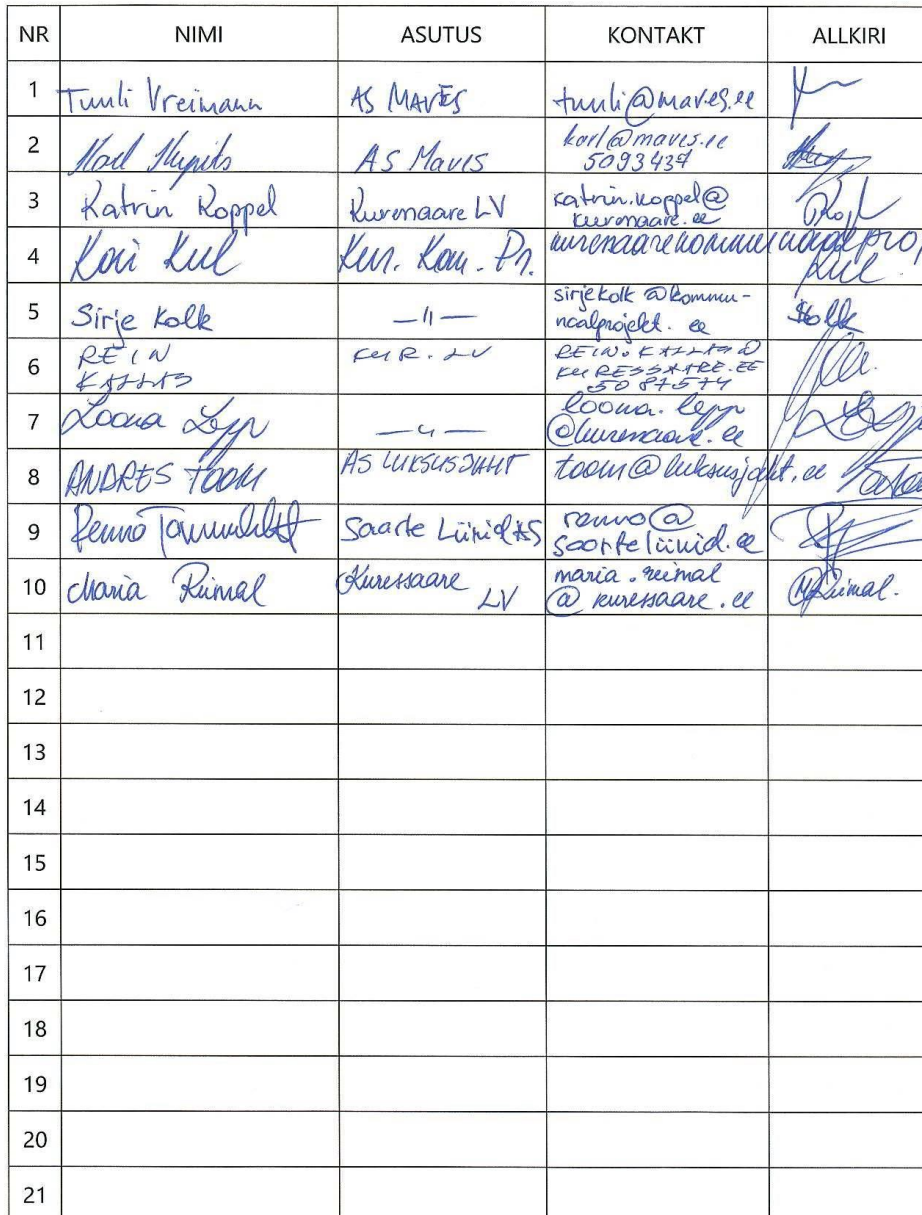 NR NIMI ASUTUS KONTAKT ALLKIRI
1 Tuuli Vreimann AS MAVES tuuli@maves.ee
2 Karl Kupits AS Maves karl@maves.ee
5093437
3 Katrin Koppel Kuressaare LV katrin.koppel@
kuressaare.ee
4 Kur. Kom. Pr.
5 Sirje Kolk —"— sirjekolk@kommu-
naalprojekt.ee SKolk
6 REIN
KALLAS KUR. LV REIN.KALLAS@
KURESSAARE.EE
5087574
7 Loona Lepp —"— loona.lepp
@kuressaare.ee
8 ANDRES TOOM AS LUKSUSJAHT toom@luksusjaht.ee
9 Renno Saarte Liinid AS renno@
saarteliinid.ee
10 Maria Riimal Kuressaare
LV maria.reimal
@kuressaare.ee MRiimal.
11
12
13
14
15
16
17
18
19
20
21